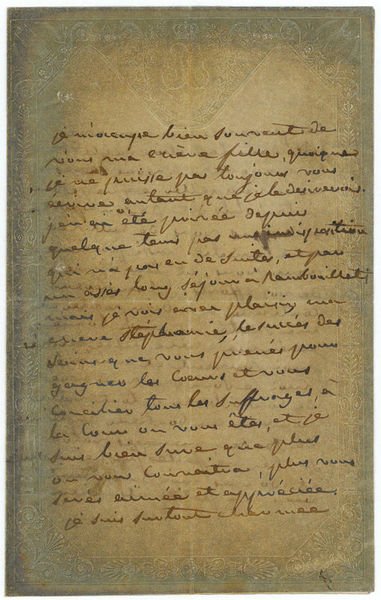 je m'occupe bien souvent de
vous ma chère fille, quoique
je ne puisse pas toujours vous
écrire autant que je le desirerois.
j'en ai été privée depuis
quelque tems par une indisposition
qui n'a pas eu de suites, et par
un assés long séjour à Rambouillet;
mais je vois avec plaisir ma
chere Stephannie, le succés des
soins que vous prenés pour
gagner les cœurs et vous
concilier tous les suffrages, à
la Cour ou vous êtes, et je
suis bien sure que plus
on vous connoitra, plus vous
serés aimée et appréciée.
je suis surtout charmée